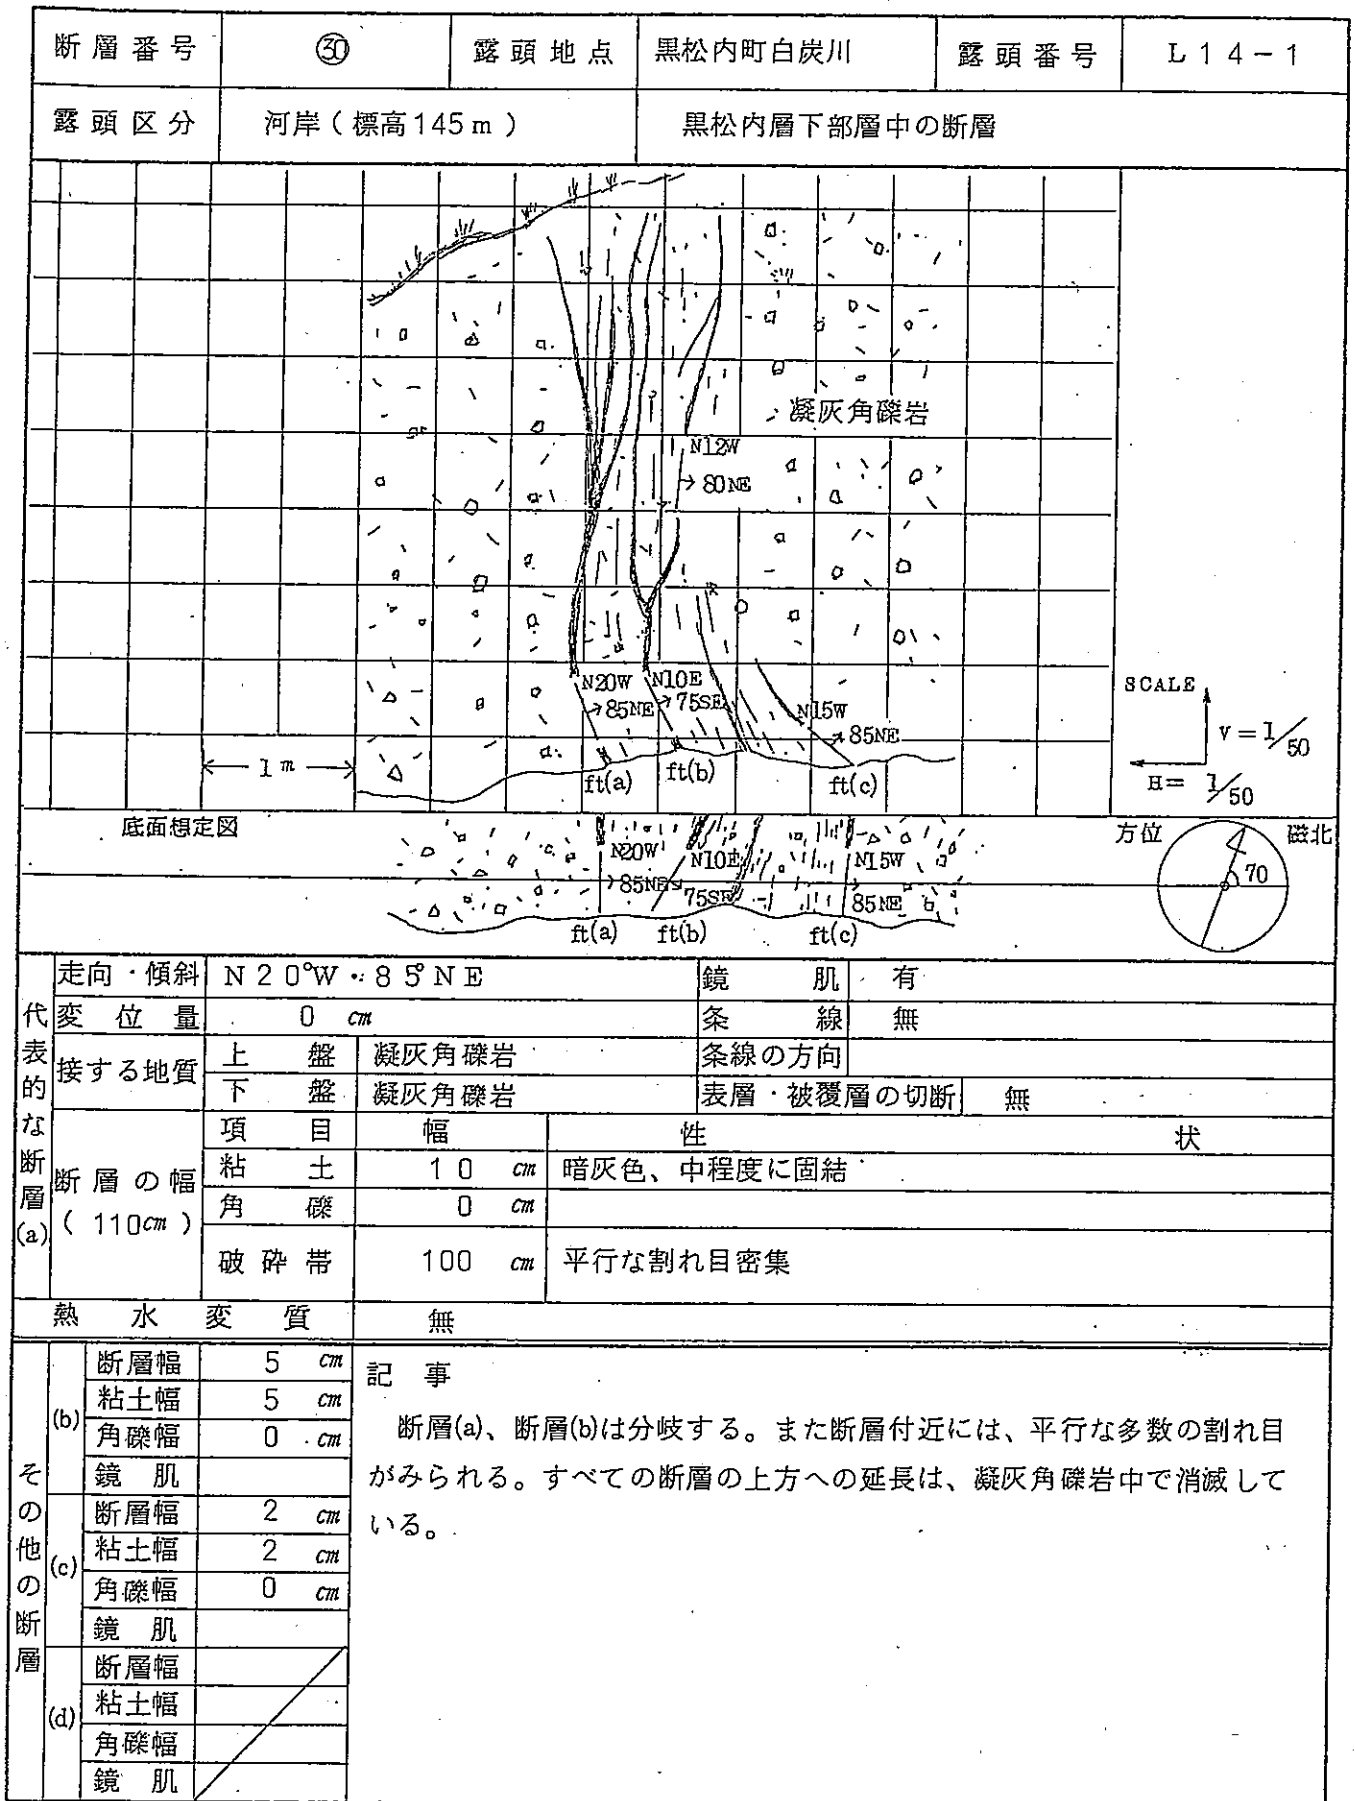 断層番号 ㉚ 露頭地点 黒松内町白炭川 露頭番号 L14-1
露頭区分 河岸（標高145m） 黒松内層下部層中の断層
凝灰角礫岩
N12W
→80NE
N20W N10E
→85NE →75SE
N15W
→85NE
1m
ft(a) ft(b) ft(c)
SCALE
V=1/50
H=1/50
底面想定図 方位 磁北
N20W N10E N15W
70
→85NE 75SE 85NE
ft(a) ft(b) ft(c)
代表的な断層(a)
走向・傾斜 N20°W・85°NE 鏡肌 有
変位量 0 cm 条線 無
接する地質 上盤 凝灰角礫岩 条線の方向
下盤 凝灰角礫岩 表層・被覆層の切断 無
断層の幅 項目 幅 性状
(110cm) 粘土 10 cm 暗灰色、中程度に固結
角礫 0 cm
破砕帯 100 cm 平行な割れ目密集
熱水変質 無
その他の断層
(b) 断層幅 5 cm
粘土幅 5 cm
角礫幅 0 cm
鏡肌
(c) 断層幅 2 cm
粘土幅 2 cm
角礫幅 0 cm
鏡肌
(d) 断層幅
粘土幅
角礫幅
鏡肌
記事
断層(a)、断層(b)は分岐する。また断層付近には、平行な多数の割れ目
がみられる。すべての断層の上方への延長は、凝灰角礫岩中で消滅して
いる。